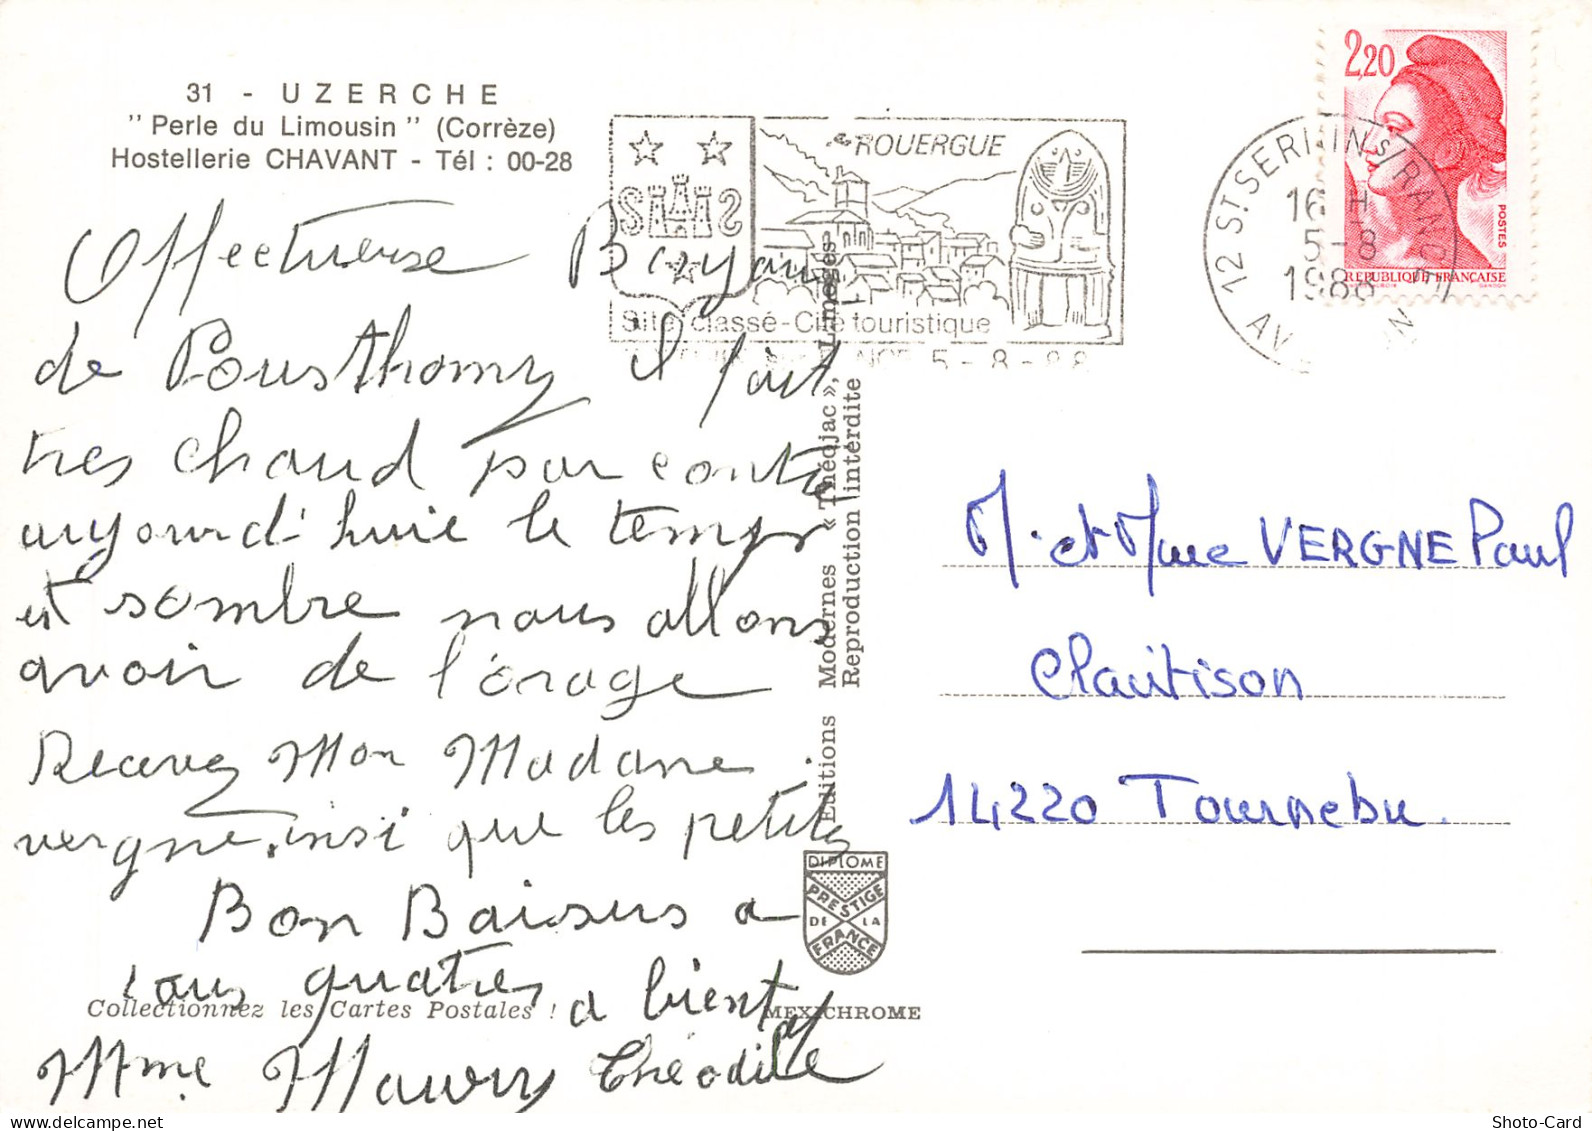 31 - UZERCHE
"Perle du Limousin" (Corrèze)
Hostellerie CHAVANT - Tél : 00-28
Affectueuse Bayau
de Pousthomy Il fait
tres chaud par contre
aujourd'huie le temps
est sombre nous allons
avoir de l'orage
Recevez Mon Madame
vergne.insi que les petits
Bon Baisers a
tous quatres a bientot
Mme Maury Théodile
Collectionnez les Cartes Postales !
ROUERGUE
Site classé-Cité touristique
5-8-88
Editions Modernes « Thédjac », Limoges
Reproduction interdite
DIPLOME
PRESTIGE
DE LA
FRANCE
MEXICHROME
12 ST SERNIN S/RANCE
16 H
5-8
1988
AVEYRON
2,20
POSTES
REPUBLIQUE FRANÇAISE
GANDON
M. et Mme VERGNE Paul
Clautison
14220 Tournebu.
Shoto-Card